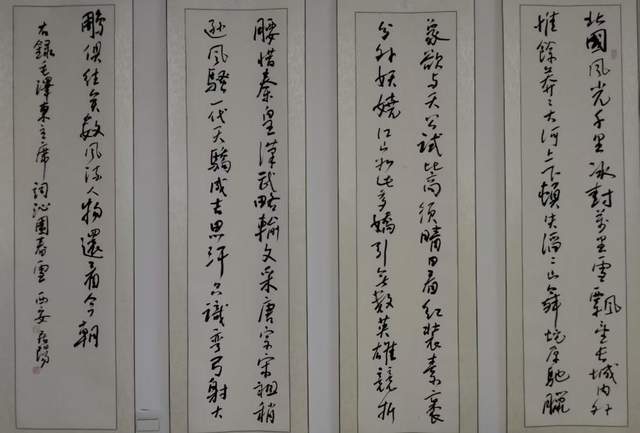 北國风光千里冰封萬里雪飄望长城内外
惟餘莽〻大河上下頓失滔〻山舞蛇原馳臘
象欲与天公試比高須晴日看红装素裹
分外妖嬈江山如此多嬌引无數英雄競折
腰惜秦皇漢武略輸文采唐宗宋祖稍
逊风騷一代天驕成吉思汗只識彎弓射大
鵰俱往矣數风流人物還看今朝
右録毛澤東主席詞沁園春雪 西安